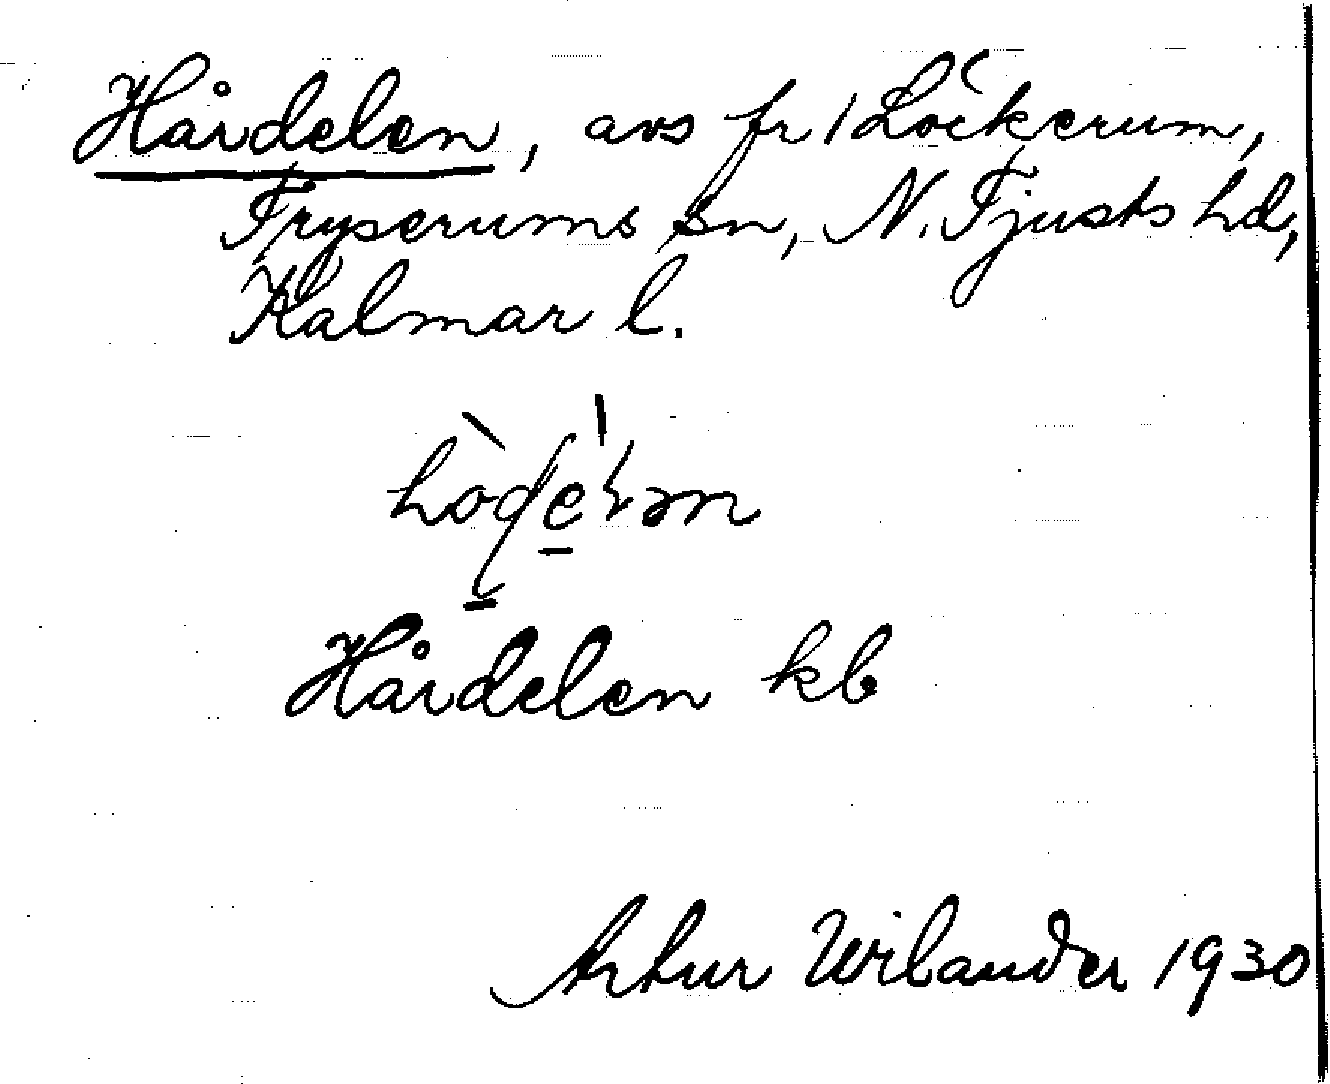 Hårdelen, avs fr 1 Löckerum,
Fryserums sn, N. Tjusts hd,
Kalmar l.
Hårdelen kb
Artur Wilander 1930